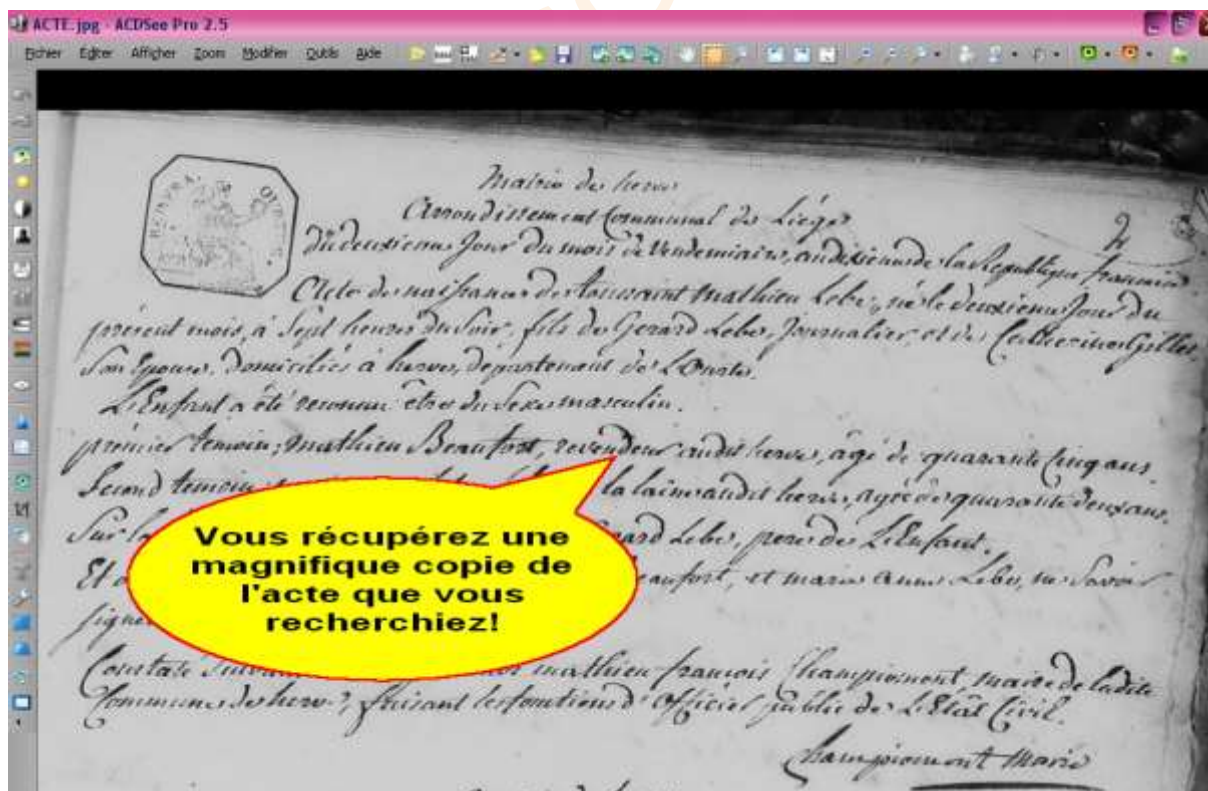 ACTE.jpg - ACDSee Pro 2.5
Fichier Editer Afficher Zoom Modifier Outils Aide
Mairie de herve
Arrondissement Communal de Liège
2
Du deuxieme Jour du mois de Vendemiaire, an dixieme de la Republique francaise
Acte de naissance de toussaint Mathieu Lebe, né le deuxieme Jour du
présent mois, à Sept heures du Soir, fils de Gerard Lebe, Journalier, et de Catherine Gilles
Son Epouse, Domiciliés à herve, département de L'Ourte.
L'Enfant a été reconnu être du Sexe masculin.
premier temoin, mathieu Beaufort, revendeur audit herve, agé de quarante Cinq ans
Second temoin la laine audit herve, agée de quarante deux ans,
Sur la Gerard Lebe, pere de L'Enfant.
Et Beaufort, et marie anne Lebe, ne Savoir
signer
Constaté Suivant mathieu francois Championont maire de ladite
Commune de herve, faisant les fonctions d'Officier public de L'Etat Civil.
Championont Maire
Vous récupérez une
magnifique copie de
l'acte que vous
recherchiez!